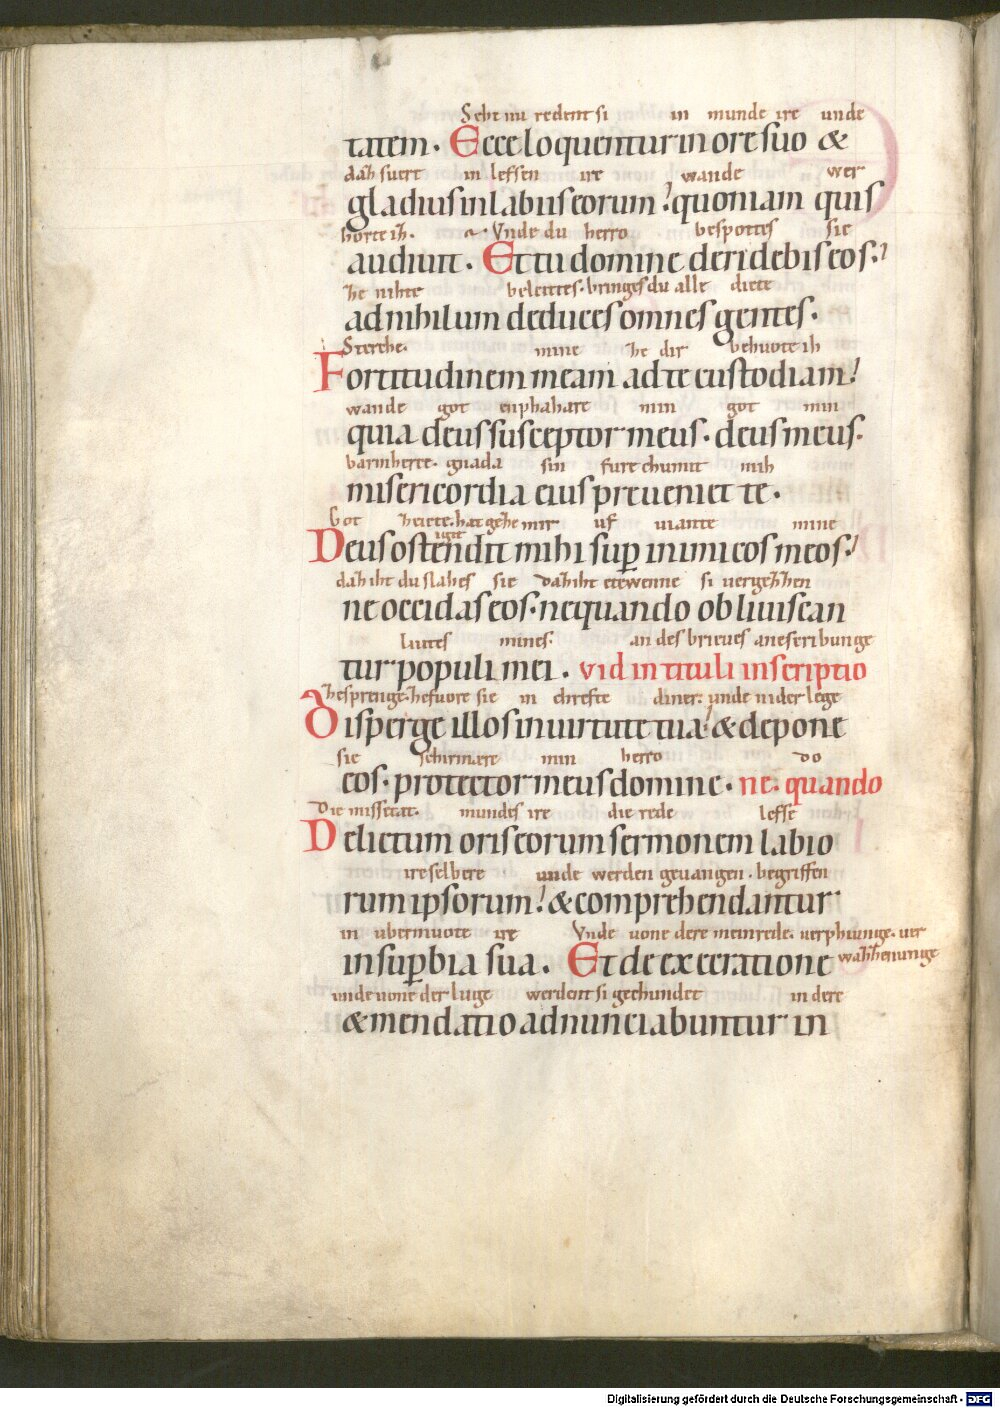 Seht nu redent si in munde ire unde
tatem. Ecce loquentur in ore suo &
dah suert in lefsen ire wande wer
gladius in labiis eorum? quoniam quis
horte ih. Vnde du herro bespottes sie
audiuit. Et tu domine deridebis eos:
ze nihte beleittes. bringes du alle diete
ad nihilum deduces omnes gentes.
Sterche. mine ze dir behuote ih
Fortitudinem meam ad te custodiam!
wande got enphahare min got min
quia deus susceptor meus. deus meus.
barmherte. gnada sin fure chumit mih
misericordia eius preueniet te.
Got mir uf uiante mine
Deus ostendit mihi sup inimicos meos!
dah iht du slahes sie dah iht etewenne si vergezzen
ne occidas eos. nequando obliuiscan
liutes mines. an des brieues anescribunge
tur populi mei. vid in tituli inscriptio
zesprenge. zefuore sie in chrefte diner. unde nider lege
Disperge illos in uirtute tua! & depone
sie schirmare min herro do
eos. protector meus domine. ne. quando
Die missetat. mundes ire die rede lefse
Delictum oris eorum sermonem labio
ire selbere unde werden geuangen. begriffen
rum ipsorum! & comprehendantur
in ubermuote ire Vnde uone dere meinrede. uerphiunge. uer
in supbia sua. Et de execratione wahzenunge
unde uone der luge werdent si gechundet in dere
& mendatio adnunciabuntur in
Digitalisierung gefördert durch die Deutsche Forschungsgemeinschaft - DFG